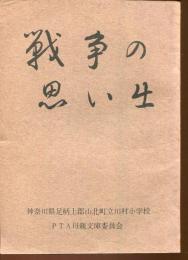 戦争の
思い出
神奈川県足柄上郡山北町立川村小学校
PTA母親文庫委員会